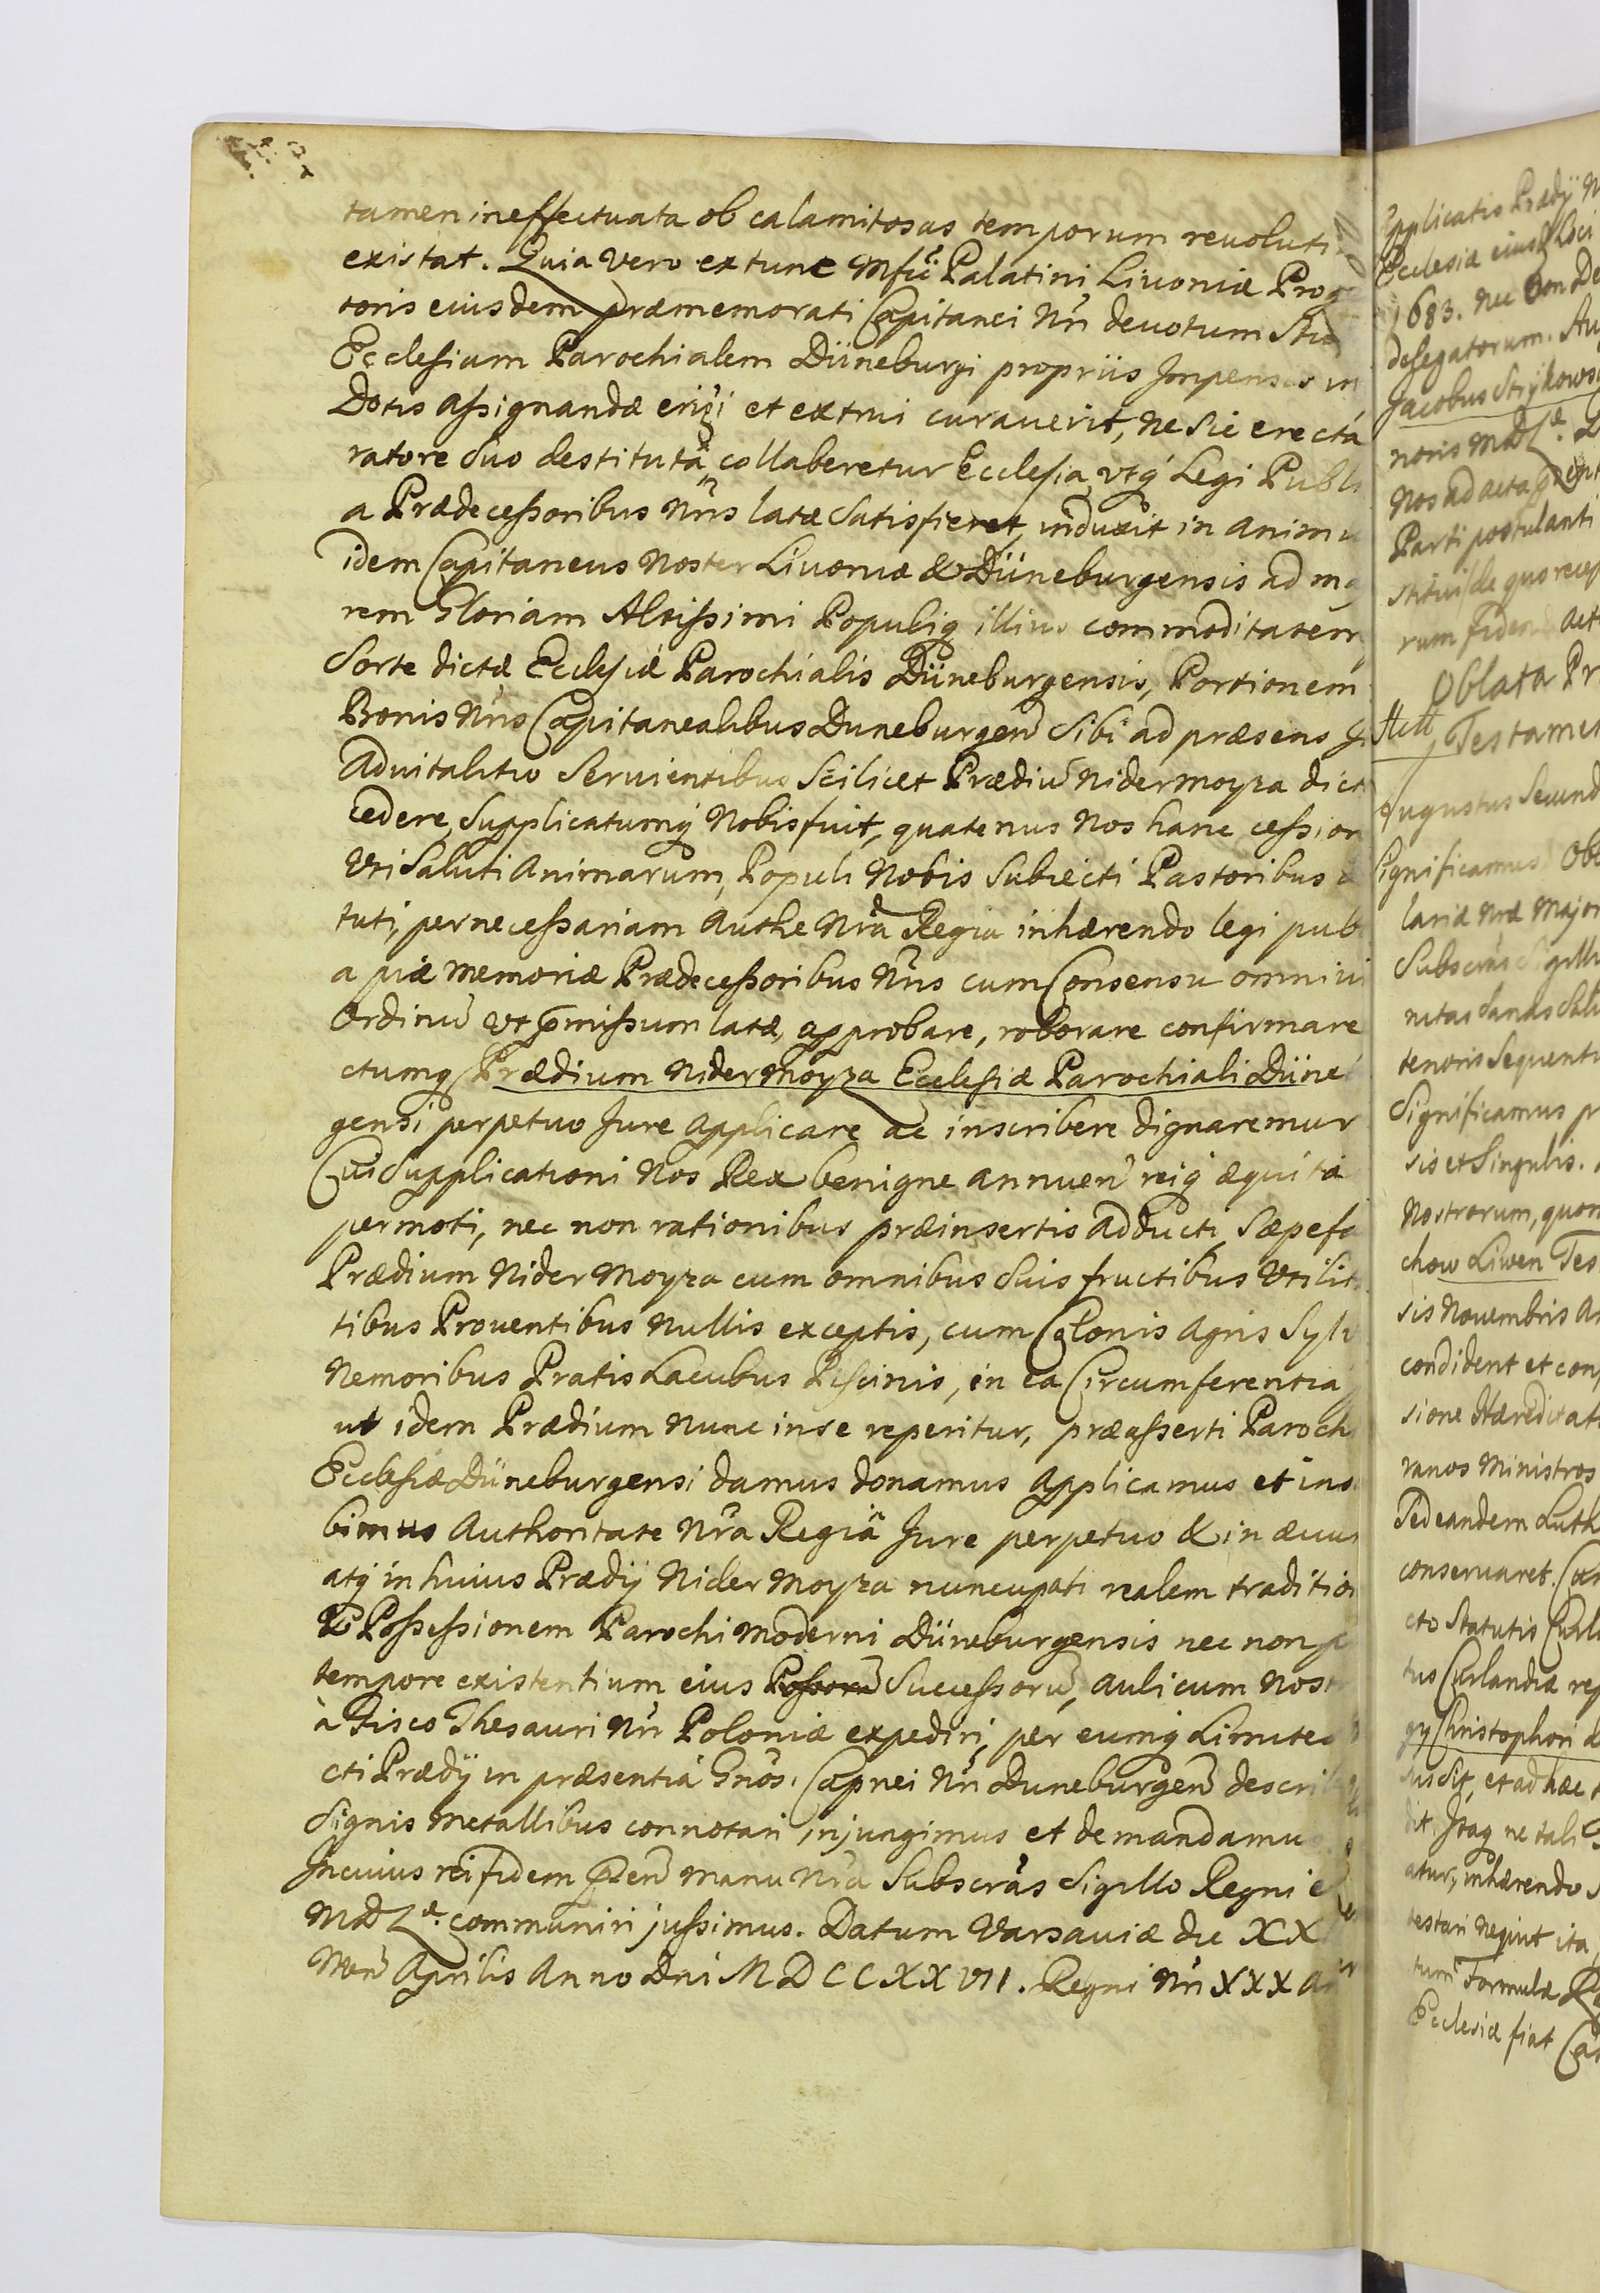 tamen ineffectuata ob calamitosas temporum reuoluti
existat. Quia vero ex tunc Mfici Palatini Livoniæ Prog
toris eiusdem præmemorati Capitanei Nri devotum Stud
Ecclesiam Parochialem Düneburgi propriis Impensis in
Dotis assignandæ erigi et extrui curaverit, ne sic erecta
ratore suo destituta collaberetur Ecclesia, utq Legi Publi
a Prædecessoribus Nris latæ satisfieret, induxit in anim
idem Capitaneus Noster Livoniæ & Düneburgensis ad ma
rem Gloriam Altissimi Populiq illius commoditatem
Sorte dictæ Ecclesiæ Parochialis Düneburgensis, Portionem
Bonis Nris Capitanealibus Duneburgen Sibi ad præsens
Advitalitio Servientibus Scilicet Prædiu Nidermoyza dict
cedere, Supplicatumq Nobis fuit, quatenus Nos hanc cession
Uti Saluti Animarum, Populi Nobis Subiecti Pastoribus
tuti, pernecessariam Authe Nra Regia inhærendo legi pub
a piæ memoriæ Prædecessoribus Nris cum Consensu omniu
Ordinu ut pmissum latæ, approbare, roborare confirmare
ctumq Prædium Nidermoyza Ecclesiæ Parochiali Düne
gensi perpetuo Jure applicare ac inscribere dignaremur
Cui Supplicationi Nos Rex benigne annuen reiq æquita
permoti, nec non rationibus præinsertis adducti, Sæpefa
Prædium Nider Moyza cum omnibus Suis fructibus Utilit
tibus Proventibus Nullis exceptis, cum Colonis Agris Sylv
Nemoribus Pratis Lacubus Piscinis, in ea Circumferentia
ut idem Prædium Nunc in se reperitur, præasserti Paroch
Ecclesiæ Düneburgensi damus donamus applicamus et ins
bimus Authoritate Nra Regiâ Jure perpetuo & in ævu
atq in huius Prædij Nider Moyza nuncupati realem traditio
& Possessionem Parochi Moderni Düneburgensis nec non p
tempore existentium eius Possorü Successorü, Aulicum Nost
à Fisco Thesauri Nri Poloniæ expediri, per eumq Limites
cti Prædij in præsentiâ Gnosi Capnei Nri Duneburgen descri
Signis Metallibus connotari injungimus et demandamus
In cuius rei fidem pden manu Nra Subscras Sigillo Regni e
MDL communiri jussimus. Datum Varsaviæ die XX
Men Aprilis Anno Dni MDCCXXVII. Regni Nri XXX
pplicatis Prædij N
Ecclesiæ eiusq Loci
1683. Nec Non De
delegatorum. Au
Jacobus Strykows
noris MDL
Nos ad acta
Parti postulanti
rum fidem act
Oblata Pr
Testamen
Augustus Secund
Significamus Ob
lariæ Nræ Major
Subscras Sigillu
tenoris Sequenti
Significamus p
sis et Singulis.
Nostrorum, quor
chow Liwen Tes
sis Novembris A
condident et con
sione Hæreditat
ranos Ministros
Sed eandem Luth
conservaret. Ca
cto Statutis Curl
tus Curlandiæ re
Christophori
sus Sit, et ad hæc
dit. Itaq ne tali
atur, inhærendo
testari neqiut ita
tum Formulæ Re
Ecclesiæ fiat Ca